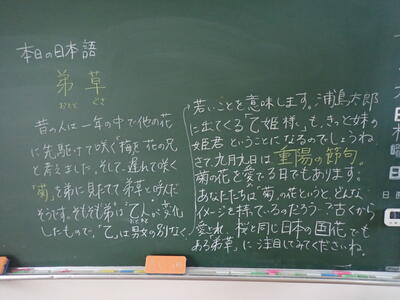 本日の日本語
弟草
おとと ぐさ
昔の人は一年の中で他の花
に先駆けて咲く「梅」を花の兄
と考えました。そして、遅れて咲く
「菊」を弟に見たてて弟草と呼んだ
そうです。そもそも「弟」は「乙人」が変化
おとひと
したもので、「乙」は男女の別なく
若いことを意味します。浦島太郎
に出てくる「乙姫様」も、きっと妹の
姫君ということになるのでしょうね。
さて、九月九日は重陽の節句。
菊の花を愛でる日でもあります。
あなたたちは「菊」の花というと、どんな
イメージを持っているのだろう…?古くから
愛され、桜と同じ日本の国花でも
ある「弟草」に注目してみてくださいね。